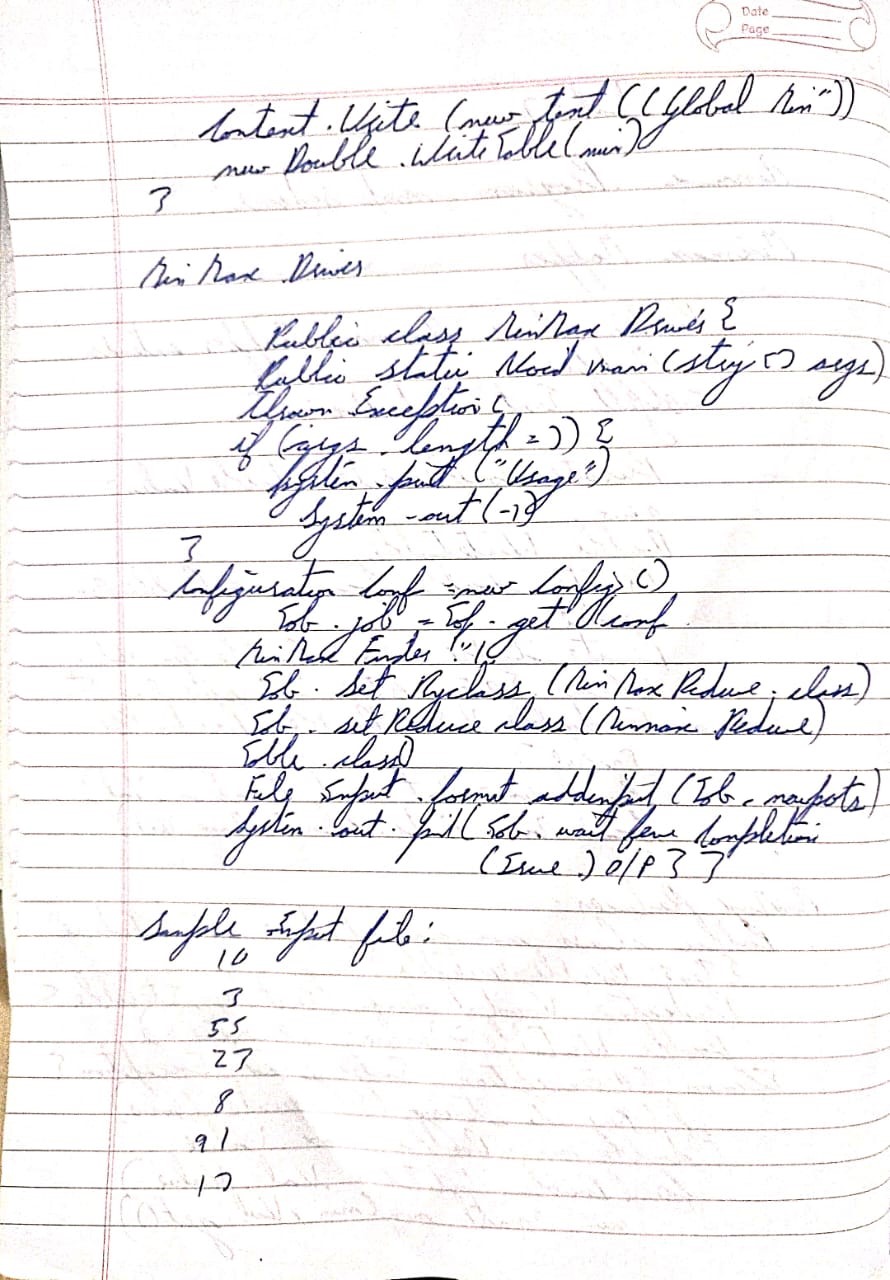 Date
Page
Context.Write (new text ((Global Min"))
new Double.WriteTable(min)
}
Min Max Driver
Public class MinMax Driver {
Public static Void main (string [] args)
Thrown Exception {
if (args.length = )) {
System.print ("Usage")
System-out (-1)
}
Configuration Conf = new Config ()
Job.job = Job.get conf
Min Max
Job.Set class (Min Max Reduce.class)
Job.setReduce class (Minmax Reduce)
class)
File Input.format addinput (Job.
System.out.print(Job.wait Completion
(True) O/P } }
Sample Input file:
10
3
55
27
8
91
17